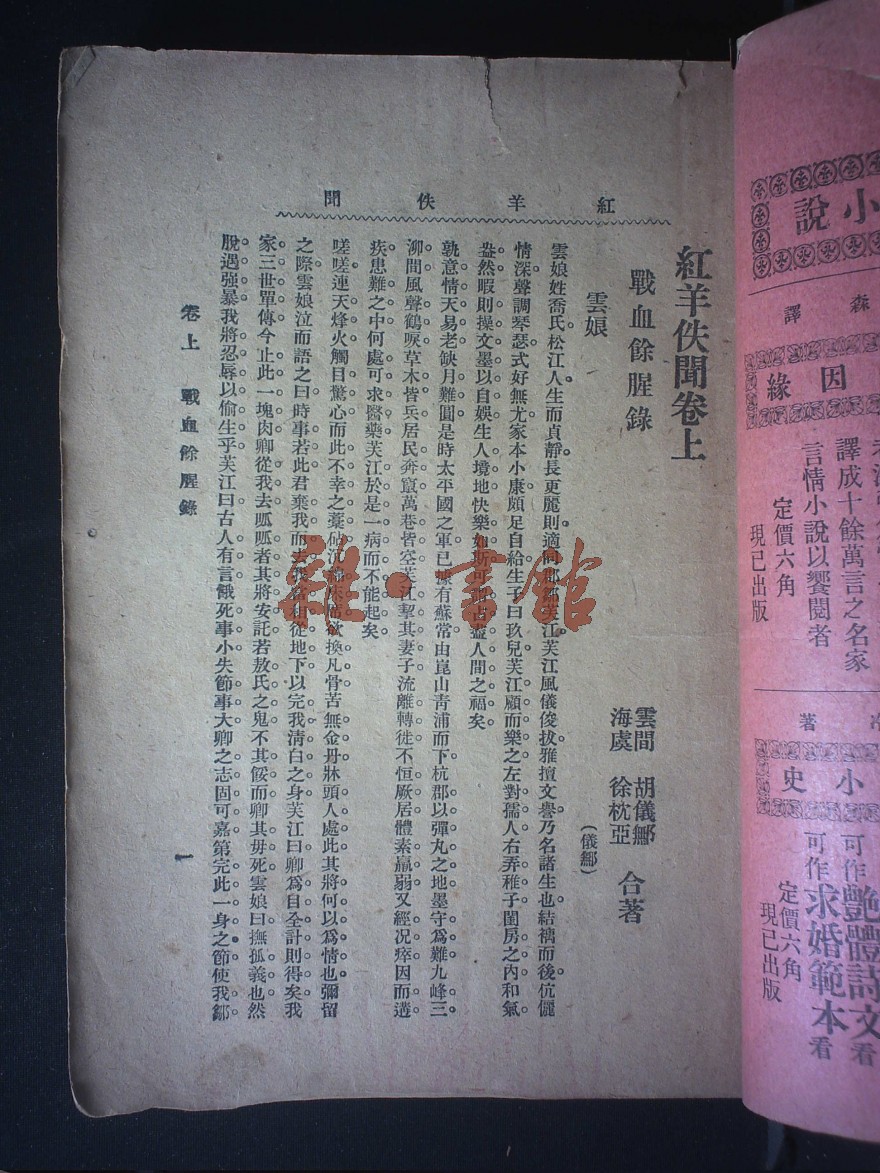 紅羊佚聞
紅羊佚聞卷上
戰血餘腥錄
雲間 胡儀鄦
海虞 徐枕亞
合著
雲娘
(儀鄦)
雲娘姓喬氏松江人生而貞靜長更麗則適同郡鄒芙江芙江風儀俊拔雅擅文譽乃名諸生也結褵而後伉儷
情深聲調琴瑟式好無尤家本小康頗足自給生子曰玖兒芙江顧而樂之左對孺人右弄稚子閨房之內和氣
盎然暇則操文墨以自娛生人境地快樂如斯可謂占盡人間之福矣
孰意情天易老缺月難圓是時太平國之軍已據有蘇常由崑山青浦而下杭郡以彈丸之地墨守為難九峰三
泖間風聲鶴唳草木皆兵居民奔竄萬巷皆空芙江挈其妻子流離轉徙不恒厥居體素羸弱又經況瘁因而遘
疾患難之中何處可求醫藥芙江於是一病而不能起矣
嗟嗟連天烽火觸目驚心而此不幸之藁砧沉綿床席欲換凡骨苦無金丹牀頭人處此其將何以為情也彌留
之際雲娘泣而語之曰時事若此君棄我而去我當相從地下以完我清白之身芙江曰卿為自全計則得矣我
家三世單傳今止此一塊肉卿從我去呱呱者其將安託若敖氏之鬼不其餒而卿其毋死雲娘曰撫孤義也然
脫遇强暴我將忍辱以偷生乎芙江曰古人有言餓死事小失節事大卿之志固可嘉第完此一身之節使我鄒
卷上 戰血餘腥錄
一
雜·書館
小說
森 譯
因緣
譯成十餘萬言之名家
言情小說以饗閱者
定價六角
現已出版
著
小史
可作艷體詩文看
可作求婚範本看
定價六角
現已出版